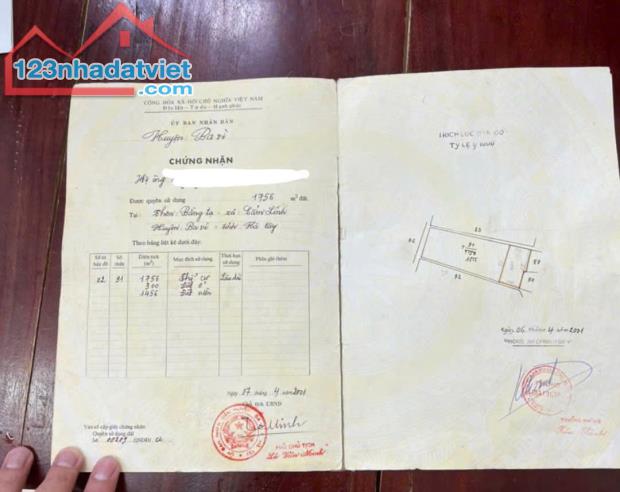 123nhadatviet.com
CỘNG HÒA XÃ HỘI CHỦ NGHĨA VIỆT NAM
Độc lập - Tự do - Hạnh phúc
ỦY BAN NHÂN DÂN
Huyện: Ba Vì
CHỨNG NHẬN
Hộ ông
Được quyền sử dụng 1756 m² đất
Tại: Thôn: Bằng tạ - xã: Cẩm Lĩnh
Huyện: Ba Vì - tỉnh: Hà tây
Theo bảng liệt kê dưới đây:
Số tờ bản đồ Số thửa Diện tích (m²) Mục đích sử dụng Thời hạn sử dụng Phần ghi thêm
02 91 1756 Thổ cư Lâu dài
300 Đất ở
1456 Đất vườn
Ngày 27 tháng 4 năm 2001
Chủ tịch UBND
PHÓ CHỦ TỊCH
Lê Văn Minh
Vào sổ cấp giấy chứng nhận
Quyền sử dụng đất
Số 00209 QSDĐ/
TRÍCH LỤC BẢN ĐỒ
TỶ LỆ 1/
91
Ngày 06 tháng 4 năm 2001